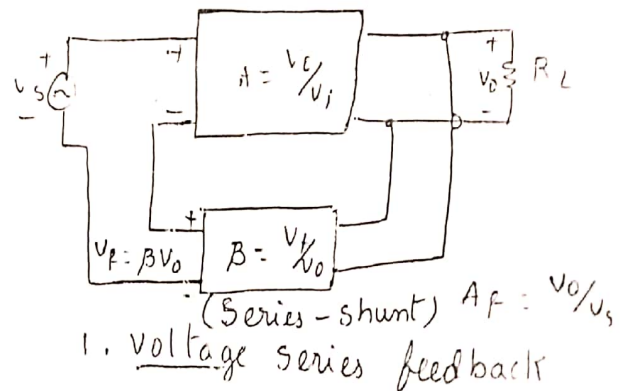 +
+
+
Vs
-
-
A = Vo/Vi
Vo
RL
-
+
Vf = βVo
β = Vf/Vo
-
(Series-shunt)
AF = Vo/Vs
1. voltage series feedback